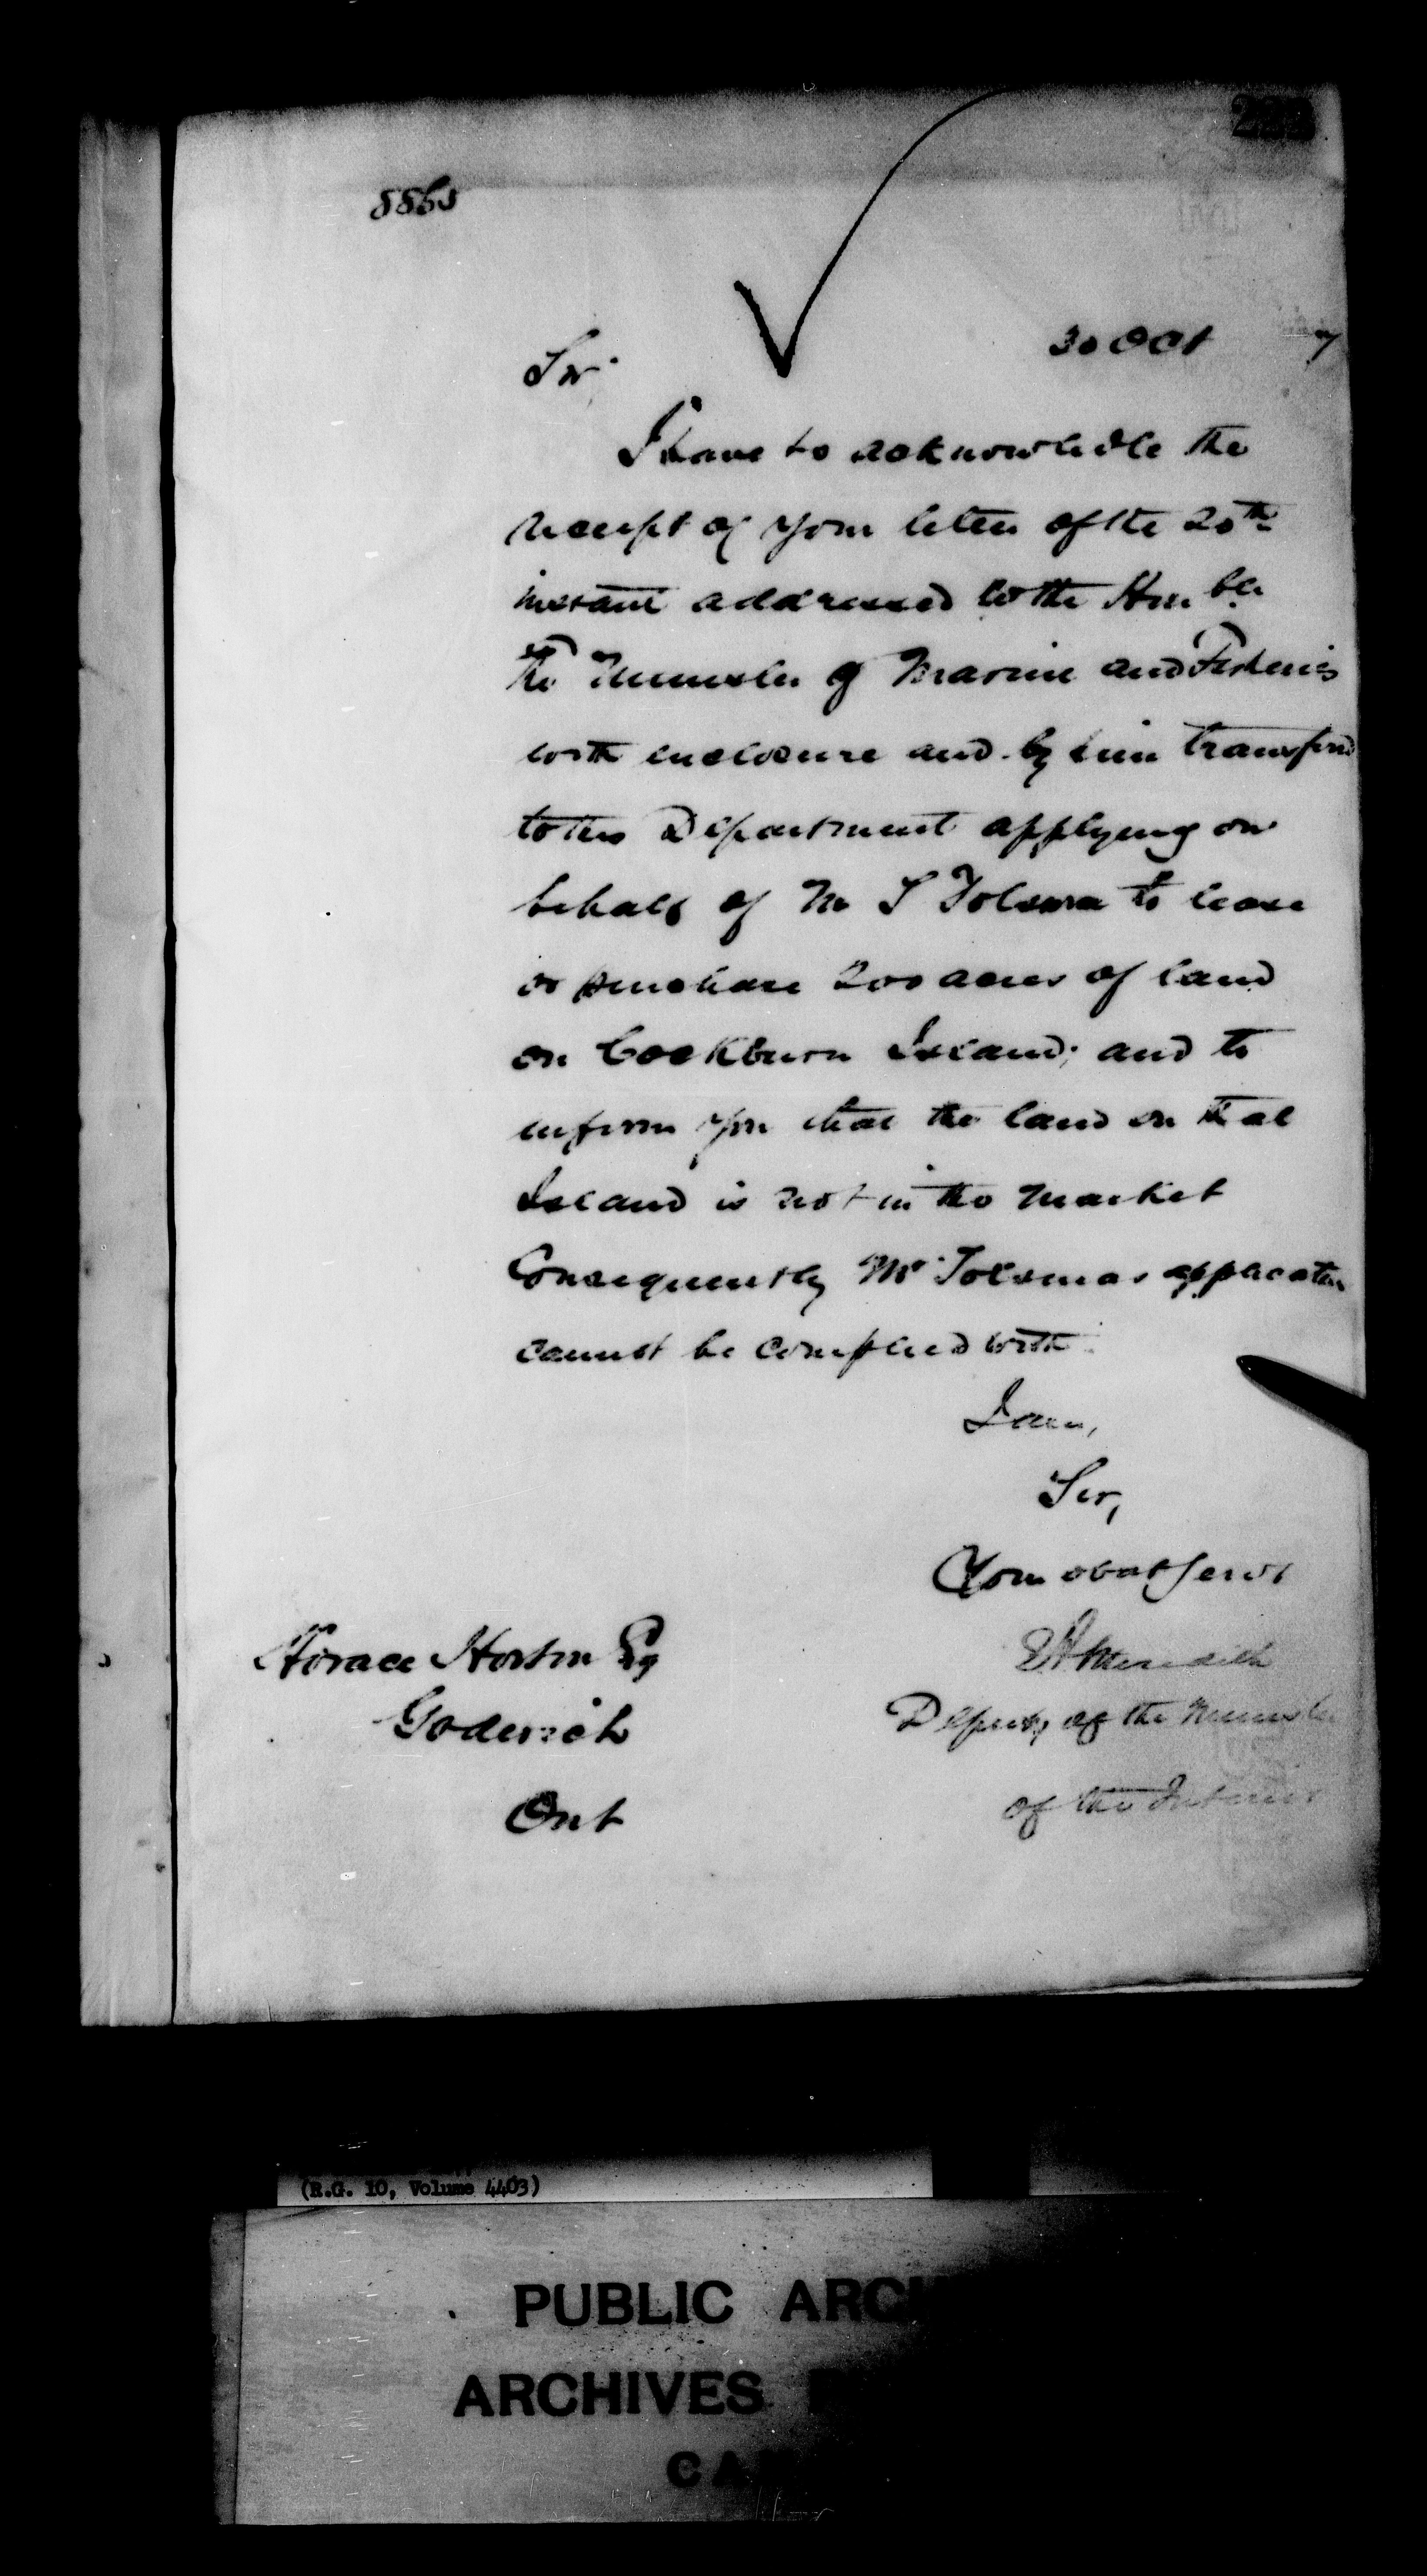 8865
30 Oct 7
Sir
I have to acknowledge the
receipt of your letter of the 20th
instant addressed to the Honble
The Minister of Marine and Fisheries
with enclosure and by him transferred
to this Department applying on
behalf of Mr S Tolsma to lease
or purchase 200 acres of land
on Cockburn Island; and to
inform you that the land on that
Island is not in the market
Consequently Mr Tolsmas application
cannot be complied with.
I am,
Sir,
Your obdt servt
E A Meredith
Deputy of the Minister
of the Interior
Horace Horton Esq
Goderich
Ont
(R.G. 10, Volume 4403)
PUBLIC ARCH
ARCHIVES
CA